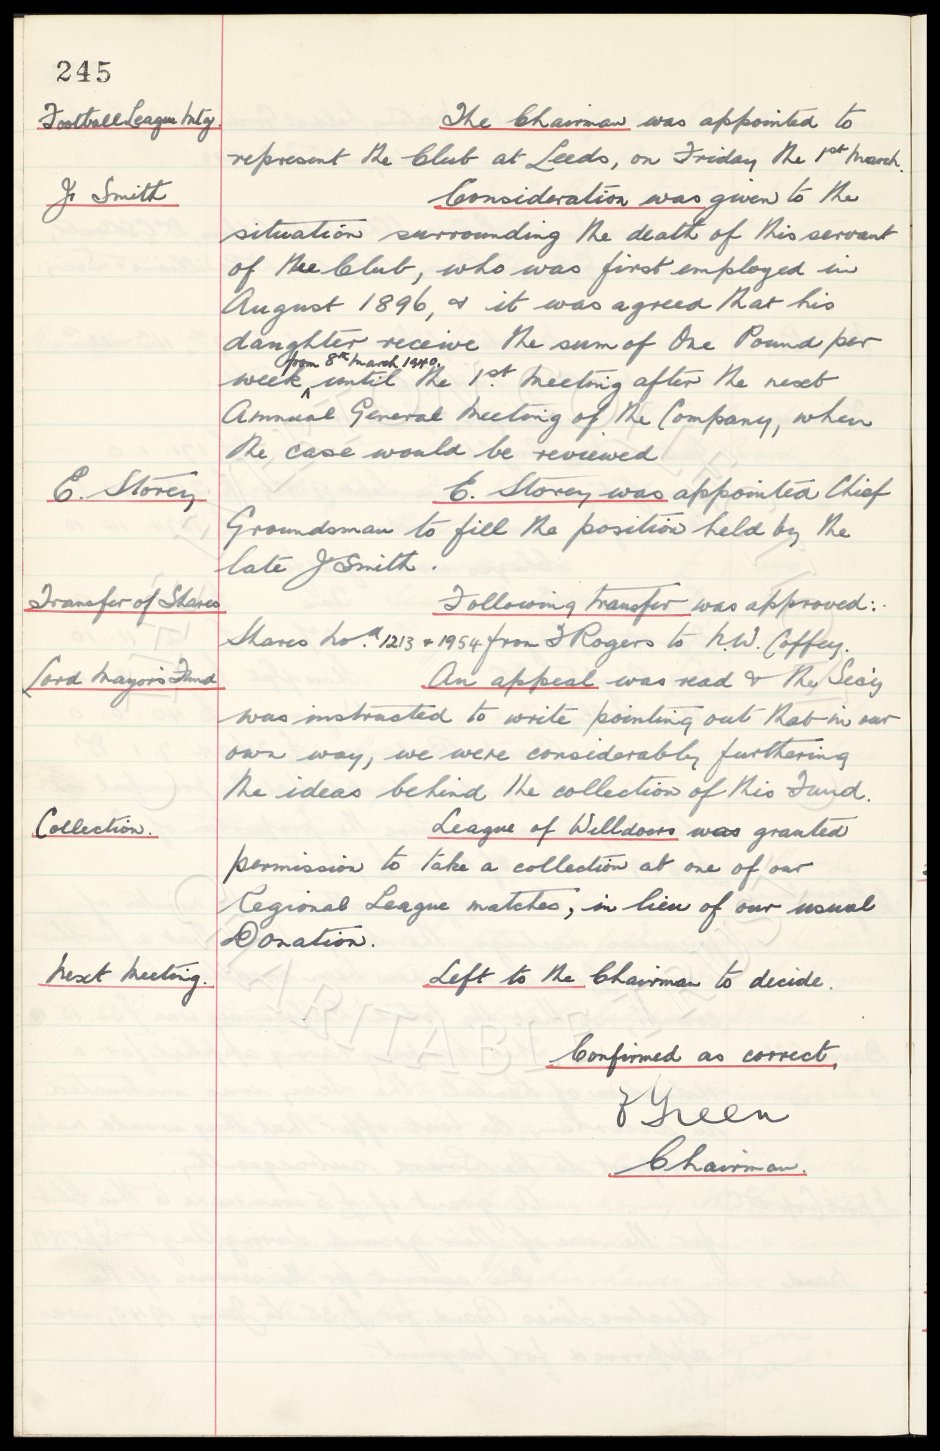 245
Football League Mtg. The Chairman was appointed to
represent the Club at Leeds, on Friday the 1st March.
J. Smith Consideration was given to the
situation surrounding the death of this servant
of the Club, who was first employed in
August 1896, & it was agreed that his
daughter receive the sum of One Pound per
from 8th March 1940.
week, until the 1st. Meeting after the next
Annual General Meeting of the Company, when
the case would be reviewed
E. Storey E. Storey was appointed Chief
Groundsman to fill the position held by the
late J Smith.
Transfer of Shares Following transfer was approved:.
Shares Nos. 1213 & 1954 from T Rogers to N.W. Coffey.
Lord Mayor's Fund An appeal was read & the Sec'y
was instructed to write pointing out that in our
own way, we were considerably furthering
the ideas behind the collection of this Fund.
Collection. League of Welldoers was granted
permission to take a collection at one of our
Regional League matches, in lieu of our usual
Donation.
Next Meeting. Left to the Chairman to decide.
Confirmed as correct,
Green
Chairman.
CHARITABLE TRUST